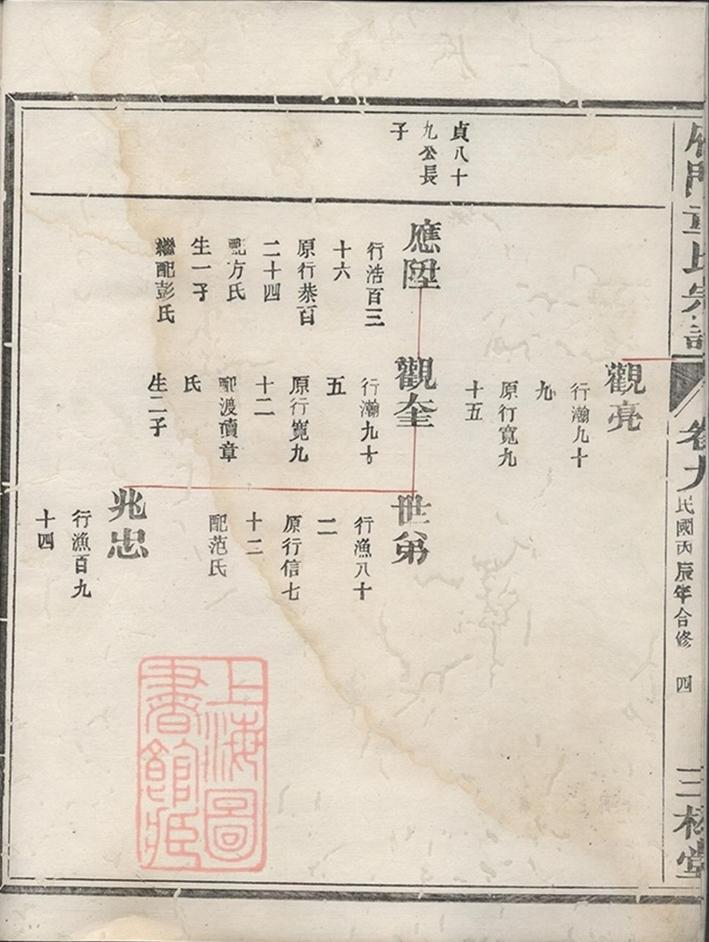 門童氏宗譜
卷九
民國丙辰年合修
四
貞八十
九公長
子
觀亮
行瀚九十
九
原行寬九
十五
應陞
行浩百三
十六
原行恭百
二十四
配方氏
生一子
繼配彭氏
觀奎
行瀚九十
五
原行寬九
十二
配渡瀆章
氏
生二子
世弟
行漁八十
二
原行信七
十二
配范氏
兆忠
行漁百九
十四
上海圖
書館藏